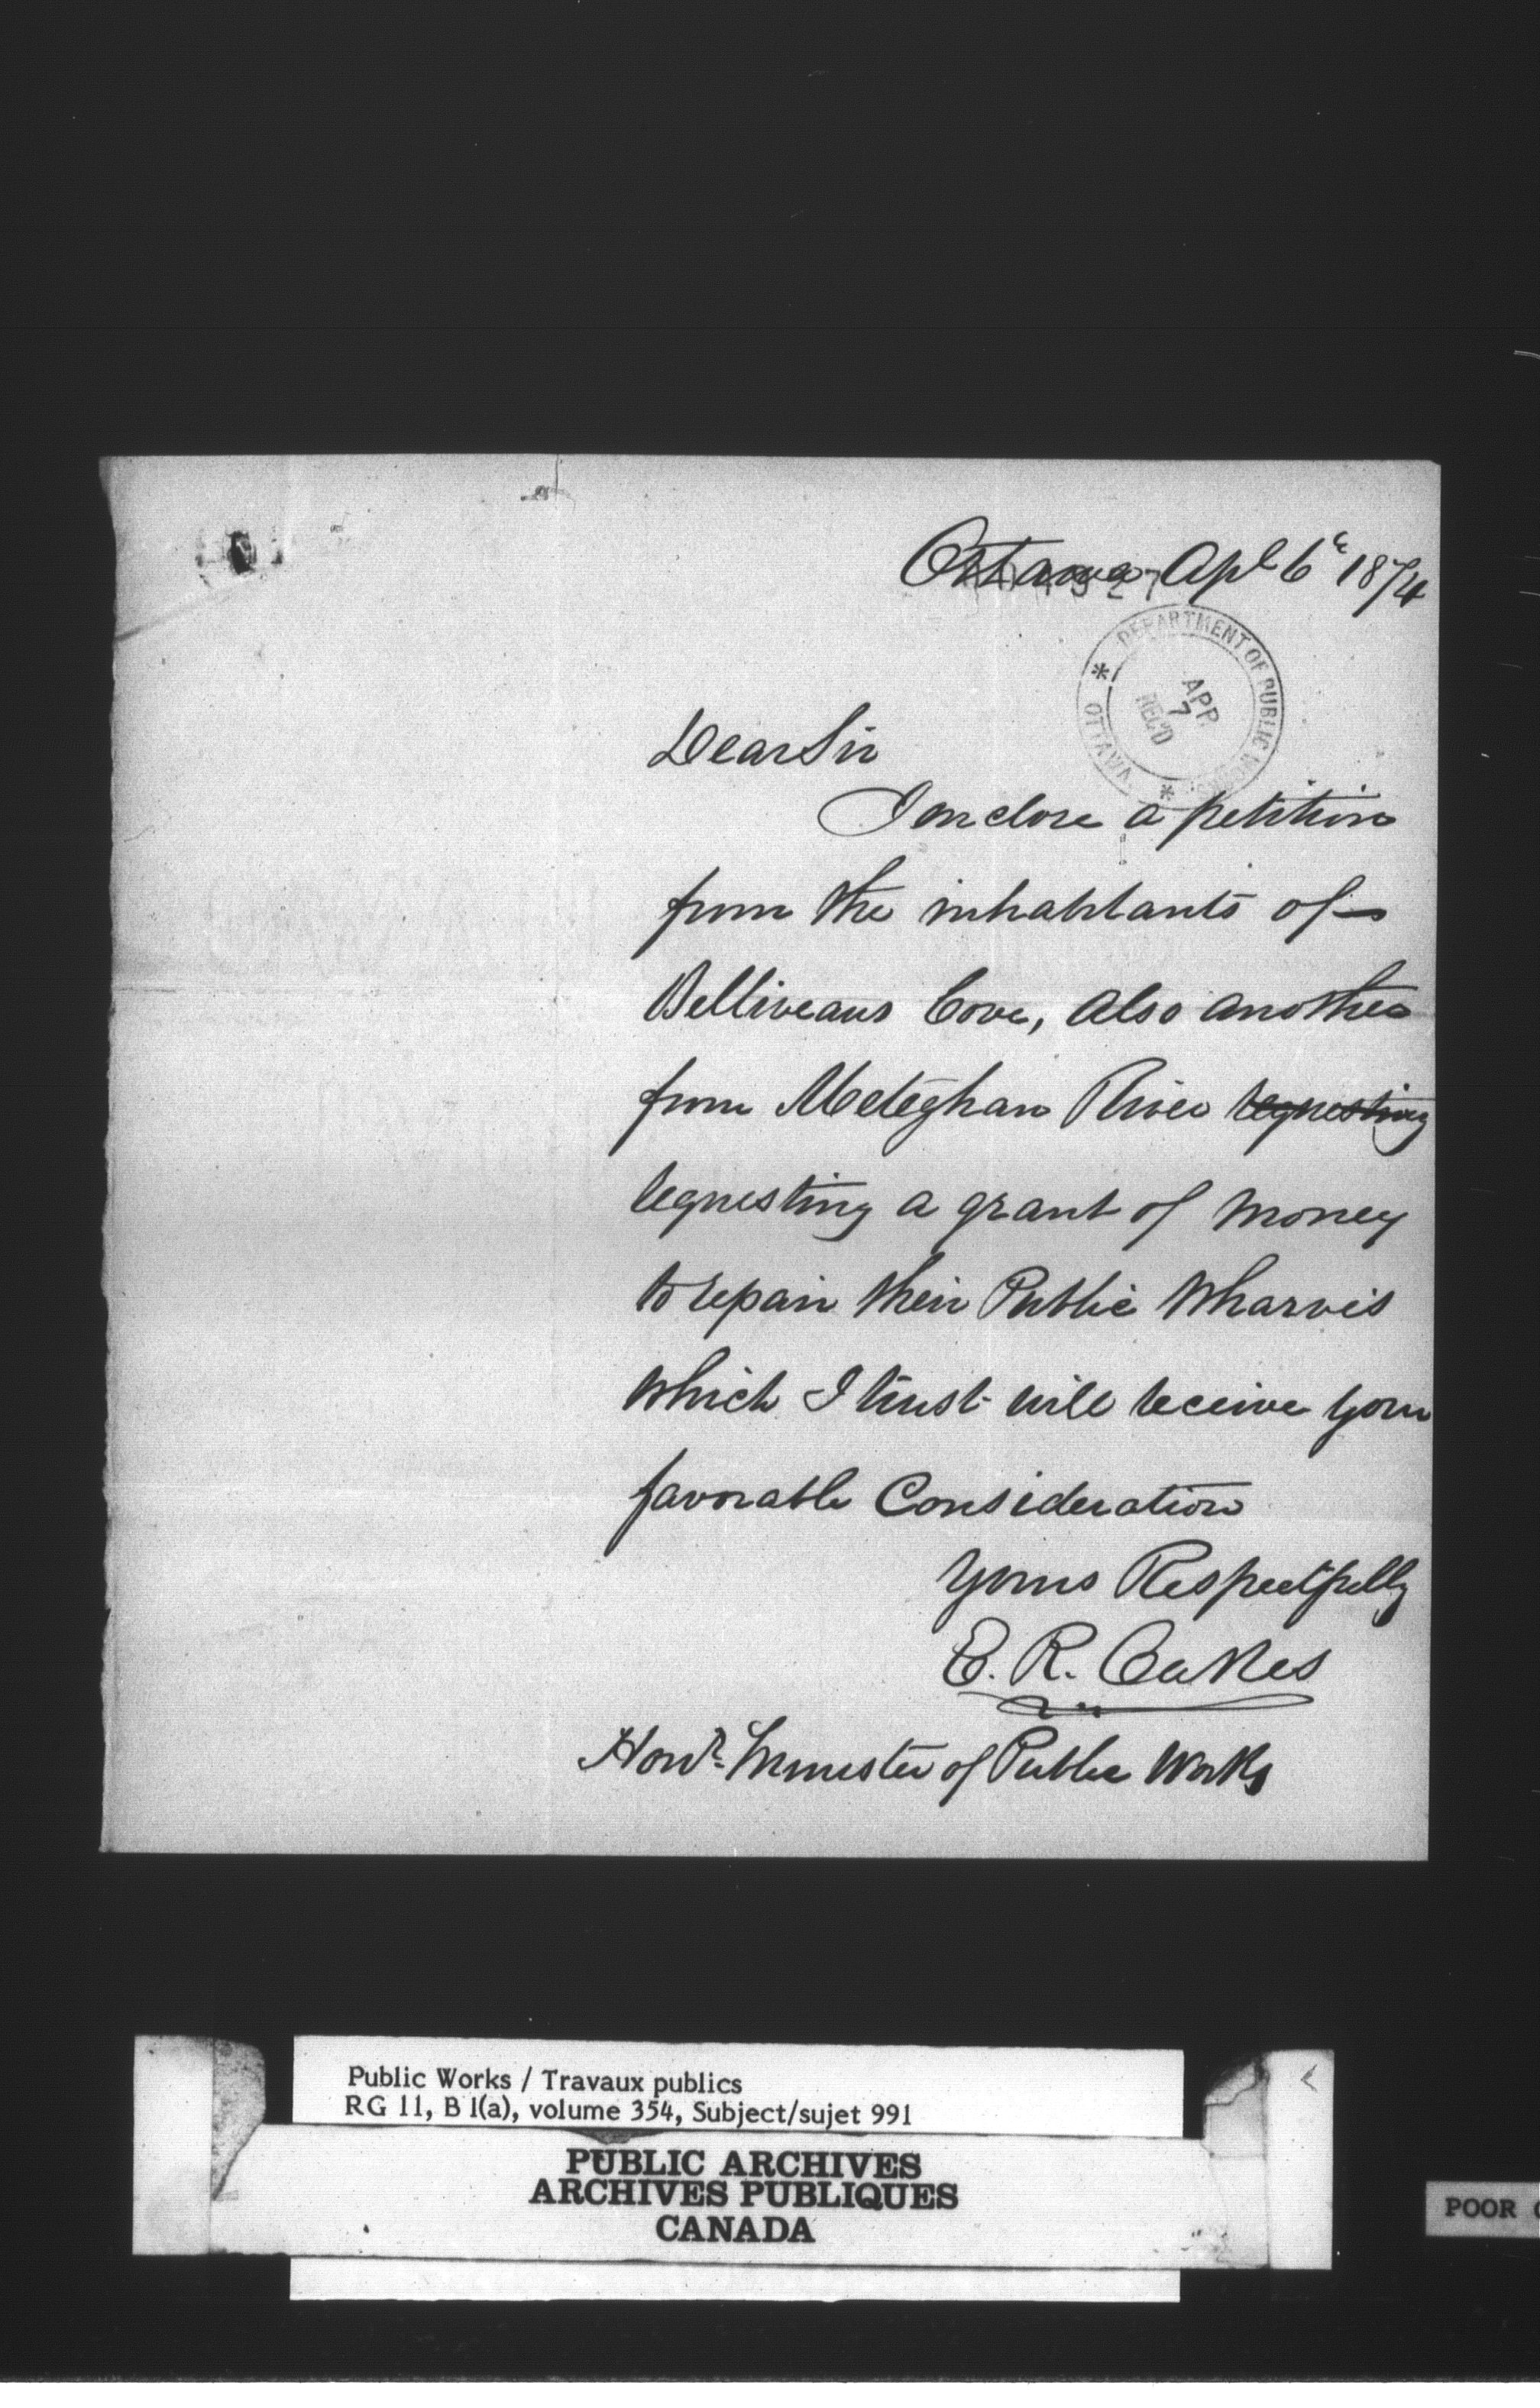 Ottawa Apl 6th 1874
DEPARTMENT OF PUBLIC WORKS
OTTAWA
APR
7
REC'D
Dear Sir
I enclose a petition
from the inhabitants of
Belliveaus Cove, also another
from Meteghan River requesting
requesting a grant of money
to repair their Public Wharves
which I trust will receive your
favorable Consideration
Yours Respectfully
E. R. Oakes
Honl. Minister of Public Works
Public Works / Travaux publics
RG 11, B 1(a), volume 354, Subject/sujet 991
PUBLIC ARCHIVES
ARCHIVES PUBLIQUES
CANADA
POOR